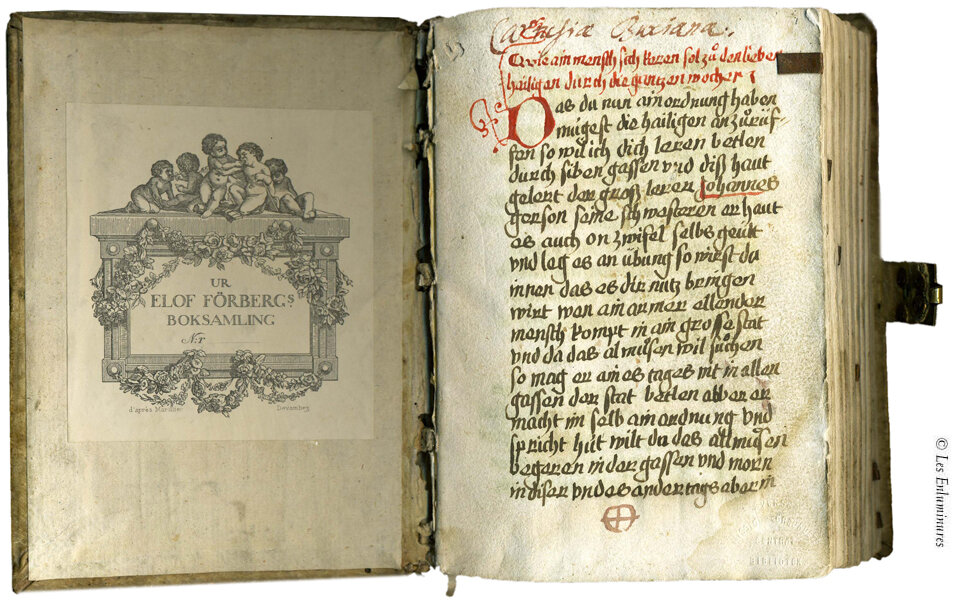 UR
ELOF FÖRBERGS
BOKSAMLING
N:r
d'après Marillier
Devambez
Cartusia Buxiana.
Wie ain mensch sich keren sol zů den lieben
hailigen durch die gantzen wochen
Das du nun ain ordnung haben
mügest die hailigen anzůrüf-
fen so wil ich dich leren betlen
durch siben gassen vnd diß haut
gelert der groß lerer Johannes
gerson seine schwesteren er haut
es auch on zwifel selbs geübt
vnd leg es an übung so wirst du
innen das es dir nutz bringen
wirt wen ain armer ellender
mensch kompt in ain grosse stat
vnd da das almusen wil sůchen
so mag er ains tages nit in allen
gassen der stat betlen abber er
macht im selb ain ordnung vnd
spricht hüt wilt du das allmůsen
begeren in der gassen vnd morn
in diser vnd es andertags aber in
CENTRAL
BIBLIOTEK
© Les Enluminures